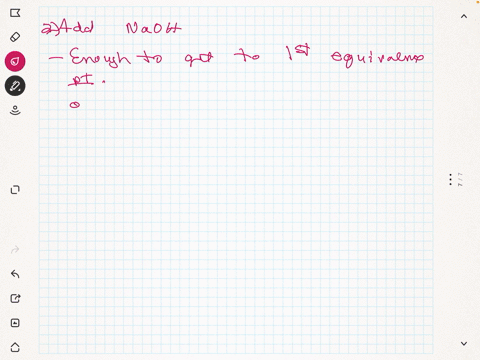 a) Add NaOH
- Enough to get to 1st equivalence
pt.